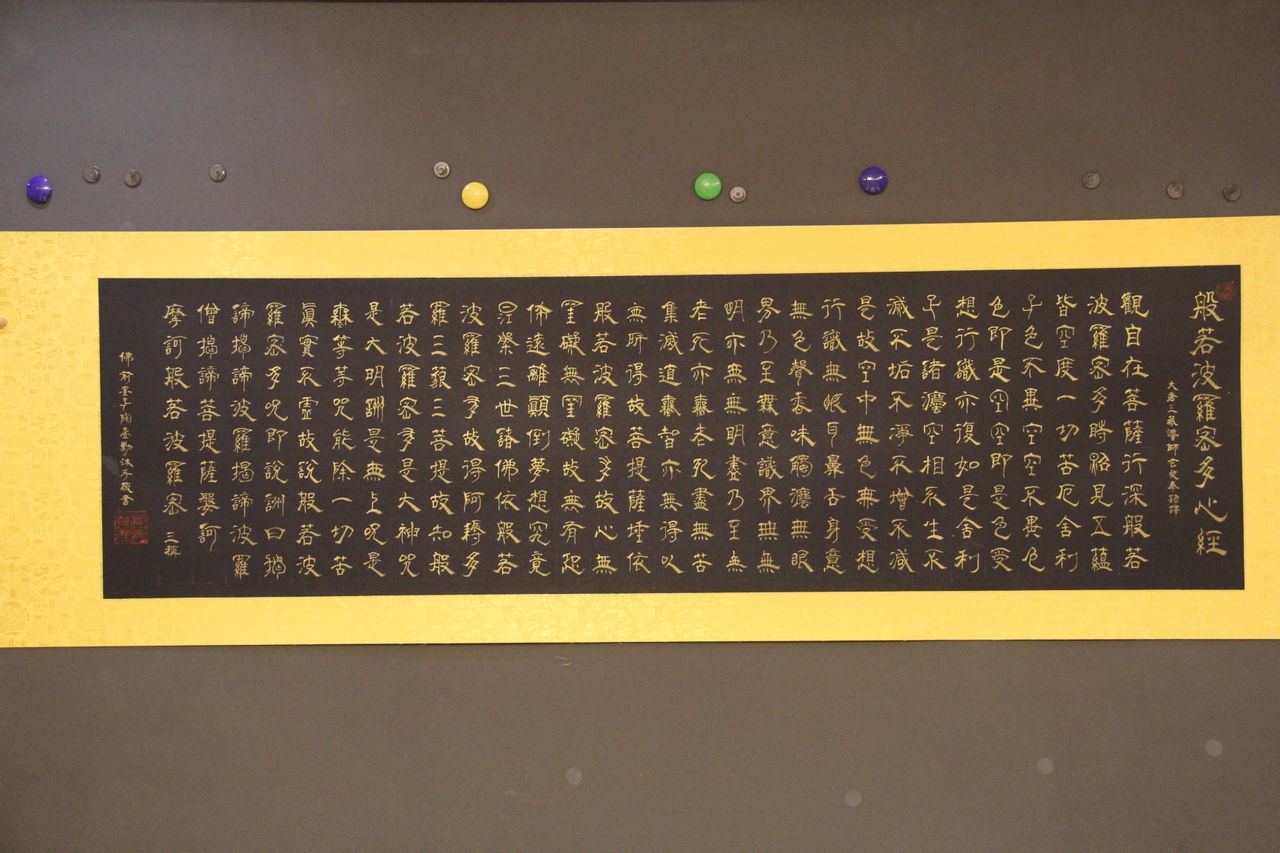 般若波羅密多心經
大唐三藏導師玄奘奉詔譯
觀自在菩薩行深般若
波羅密多時照見五蘊
皆空度一切苦厄舍利
子色不異空空不異色
色即是空空即是色受
想行識亦復如是舍利
子是諸灋空相不生不
滅不垢不淨不增不減
是故空中無色無受想
行識無眼耳鼻舌身意
無色聲香味觸灋無眼
界乃至無意識界無無
明亦無無明盡乃至無
老死亦無老死盡無苦
集滅道無智亦無得以
無所得故菩提薩埵依
般若波羅密多故心無
罣礙無罣礙故無有恐
怖遠離顛倒夢想究竟
涅槃三世諸佛依般若
波羅密多故得阿耨多
羅三藐三菩提故知般
若波羅密多是大神咒
是大明詶是無上咒是
無等等咒能除一切苦
眞實不虛故說般若波
羅密多咒即說詶曰揭
諦揭諦波羅揭諦波羅
僧揭諦菩提薩婆訶
摩訶般若波羅密 三稱
佛前墨子陶沐手敬書